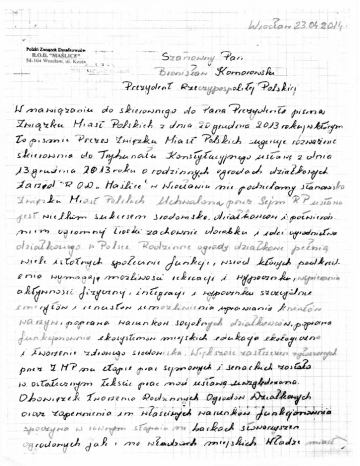 Wrocław 23.04.2014
Polski Związek Działkowców
R.O.D. "MAŚLICE"
Szanowny Pan
Bronisław Komorowski
Prezydent Rzeczypospolitej Polskiej
W nawiązaniu do skierowanego do Pana Prezydenta pisma
Związku Miast Polskich z dnia 20 grudnia 2013 roku, w którym
to piśmie Prezes Związku Miast Polskich sugeruje rozważenie
skierowania do Trybunału Konstytucyjnego ustawy z dnia
13 grudnia 2013 roku o rodzinnych ogrodach działkowych
Zarząd "R.O.D. Maślice" w Wrocławiu nie podziela stanowiska
Związku Miast Polskich. Uchwalona przez Sejm RP ustawa
jest wielkim sukcesem środowiska działkowców i
ogromnej troski zachowanie dorobku i idei ogrodnictwa
działkowego w Polsce. Rodzinne ogrody działkowe pełnią
wiele istotnych społecznie funkcji, wśród których
wymagają możliwości rekreacji i wypoczynku, wspierania
aktywności fizycznej, integracji i wypoczynku szczególnie
emerytów i rencistów umożliwienia uprawiania kwiatów
warzyw, poprawa warunków socjalnych działkowców, poprawa
funkcjonowania ekosystemu miejskich edukacja ekologiczna
i tworzenie zdrowego środowiska. Większość zastrzeżeń zgłoszonych
przez ZMP na etapie prac sejmowych i senackich została
w ostatecznym tekście prac nad ustawą uwzględniona.
Obowiązek Tworzenia Rodzinnych Ogrodów Działkowych
oraz zapewnienia im właściwych warunków funkcjonowania
spoczywa w równym stopniu na barkach stowarzyszeń
ogrodowych jak i na władzach miejskich. Władze miast